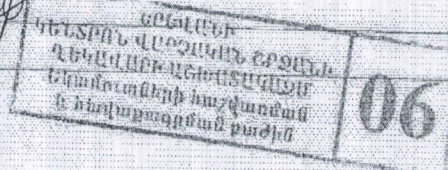 ԵՐԵՎԱՆԻ
ԿԵՆՏՐՈՆ ՎԱՐՉԱԿԱՆ ՇՐՋԱՆԻ
ՂԵԿԱՎԱՐԻ ԱՇԽԱՏԱԿԱԶՄ
եկամուտների հաշվառման
և հավաքագրման բաժին
06